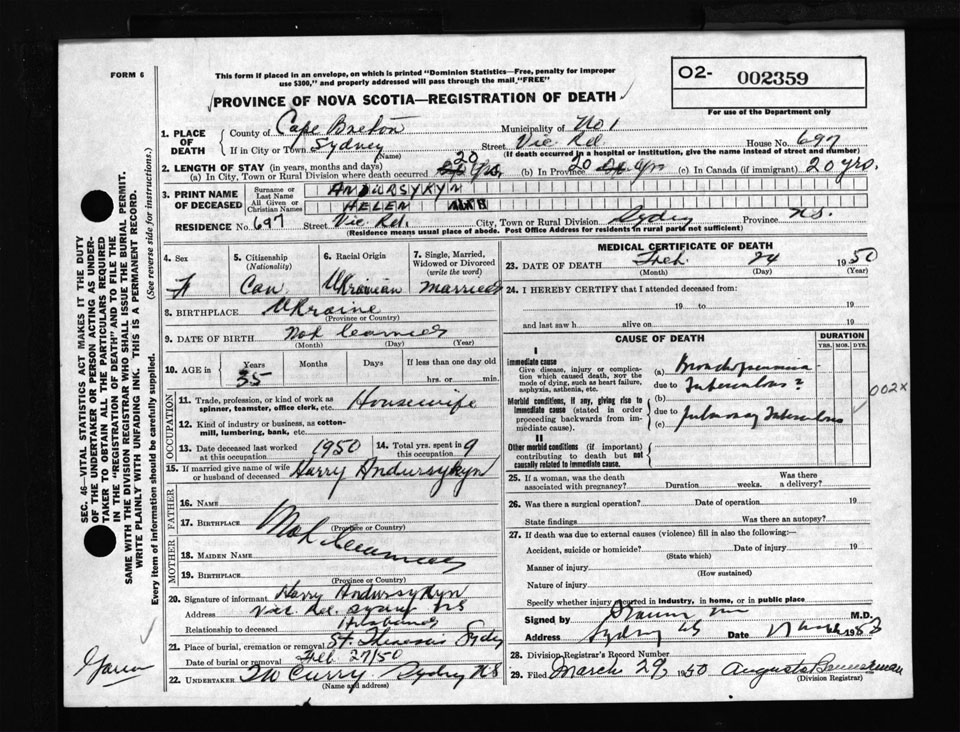 FORM 6
This form if placed in an envelope, on which is printed "Dominion Statistics—Free, penalty for improper
use $300," and properly addressed will pass through the mail "FREE"
O2- 002359
For use of the Department only
PROVINCE OF NOVA SCOTIA—REGISTRATION OF DEATH
SEC. 46—VITAL STATISTICS ACT MAKES IT THE DUTY
OF THE UNDERTAKER OR PERSON ACTING AS UNDER-
TAKER TO OBTAIN ALL THE PARTICULARS REQUIRED
IN THE "REGISTRATION OF DEATH" AND TO FILE THE
SAME WITH THE DIVISION REGISTRAR WHO SHALL ISSUE THE BURIAL PERMIT.
WRITE PLAINLY WITH UNFADING INK. THIS IS A PERMANENT RECORD.
(See reverse side for instructions.)
Every item of information should be carefully supplied.
1. PLACE OF DEATH County of Cape Breton Municipality of No 1
If in City or Town Sydney (Name) Street Vic. Rd. House No. 697
(If death occurred in a hospital or institution, give the name instead of street and number)
2. LENGTH OF STAY (in years, months and days)
(a) In City, Town or Rural Division where death occurred 20 yrs. (b) In Province 20 yrs (c) In Canada (if immigrant) 20 yrs.
3. PRINT NAME OF DECEASED
Surname or Last Name ANDURSYKYN
All Given or Christian Names HELEN
RESIDENCE No. 697 Street Vic. Rd. City, Town or Rural Division Sydney Province N.S.
(Residence means usual place of abode. Post Office Address for residents in rural parts not sufficient)
4. Sex F
5. Citizenship (Nationality) Can
6. Racial Origin Ukrainian
7. Single, Married, Widowed or Divorced (write the word) Married
8. BIRTHPLACE Ukraine
(Province or Country)
9. DATE OF BIRTH Not learned
(Month) (Day) (Year)
10. AGE in Years 35 Months Days If less than one day old
hrs. or min.
OCCUPATION
11. Trade, profession, or kind of work as
spinner, teamster, office clerk, etc. Housewife
12. Kind of industry or business, as cotton-
mill, lumbering, bank, etc.
13. Date deceased last worked at this occupation 1950
14. Total yrs. spent in this occupation 9
15. If married give name of wife
or husband of deceased Harry Andursykyn
FATHER
16. NAME
17. BIRTHPLACE Not learned
(Province or Country)
MOTHER
18. MAIDEN NAME
19. BIRTHPLACE
(Province or Country)
20. Signature of informant Harry Andursykyn
Address Vic. Rd. Sydney NS
Relationship to deceased Husband
21. Place of burial, cremation or removal Sydney
Date of burial or removal Feb 27/50
22. UNDERTAKER Curry Sydney NS
(Name and address)
MEDICAL CERTIFICATE OF DEATH
23. DATE OF DEATH Feb. 24 1950
(Month) (Day) (Year)
24. I HEREBY CERTIFY that I attended deceased from:
19 to 19
and last saw h alive on 19
CAUSE OF DEATH
DURATION
YRS. MOS. DYS.
I
Immediate cause
Give disease, injury or complica-
tion which caused death, NOT the
mode of dying, such as heart failure,
asphyxia, asthenia, etc.
(a) Bronchopneumonia
due to Tuberculous ?
Morbid conditions, if any, giving rise to
immediate cause (stated in order
proceeding backwards from im-
mediate cause).
(b)
due to
(c) Pulmonary Tuberculosis
002x
II
Other morbid conditions (if important)
contributing to death but not
causally related to immediate cause.
25. If a woman, was the death
associated with pregnancy? Duration weeks. Was there a delivery?
26. Was there a surgical operation? Date of operation 19
State findings Was there an autopsy?
27. If death was due to external causes (violence) fill in also the following:—
Accident, suicide or homicide? Date of injury 19
(State which)
Manner of injury
(How sustained)
Nature of injury
Specify whether injury occurred in industry, in home, or in public place
Signed by M.D.
Address Sydney NS Date
28. Division Registrar's Record Number
29. Filed March 29, 1950 Augusta Bannerman
(Division Registrar)